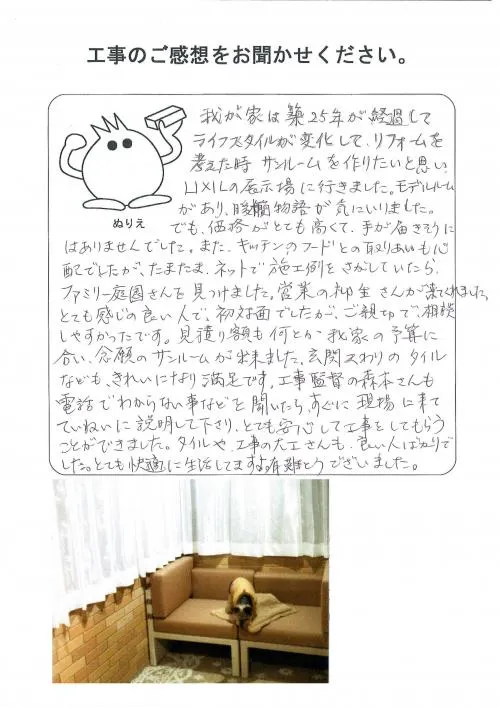 工事のご感想をお聞かせください。
我が家は築25年が経過して
ライフスタイルが変化して、リフォームを
考えた時 サンルームを作りたいと思い、
LIXILの展示場に行きました。モデルルーム
があり、暖蘭物語が気にいりました。
ぬりえ
でも、価格がとても高くて、手が届きそうに
はありませんでした。また、キッチンのフードとの取りあいも心
配でしたが、たまたま、ネットで施工例をさがしていたら、
ファミリー庭園さんを見つけました。営業の柳生さんが来てくれました。
とても感じの良い人で、初対面でしたが、ご親切で、相談
しやすかったです。見積り額も何とか我家の予算に
合い、念願のサンルームが出来ました。玄関まわりのタイル
なども、きれいになり満足です。工事監督の森本さんも
電話でわからない事などを聞いたら、すぐに現場に来て
ていねいに説明して下さり、とても安心して工事をしてもらう
ことができました。タイルや、工事の大工さんも、良い人ばかりで
した。とても快適に生活してます。有難とうございました。